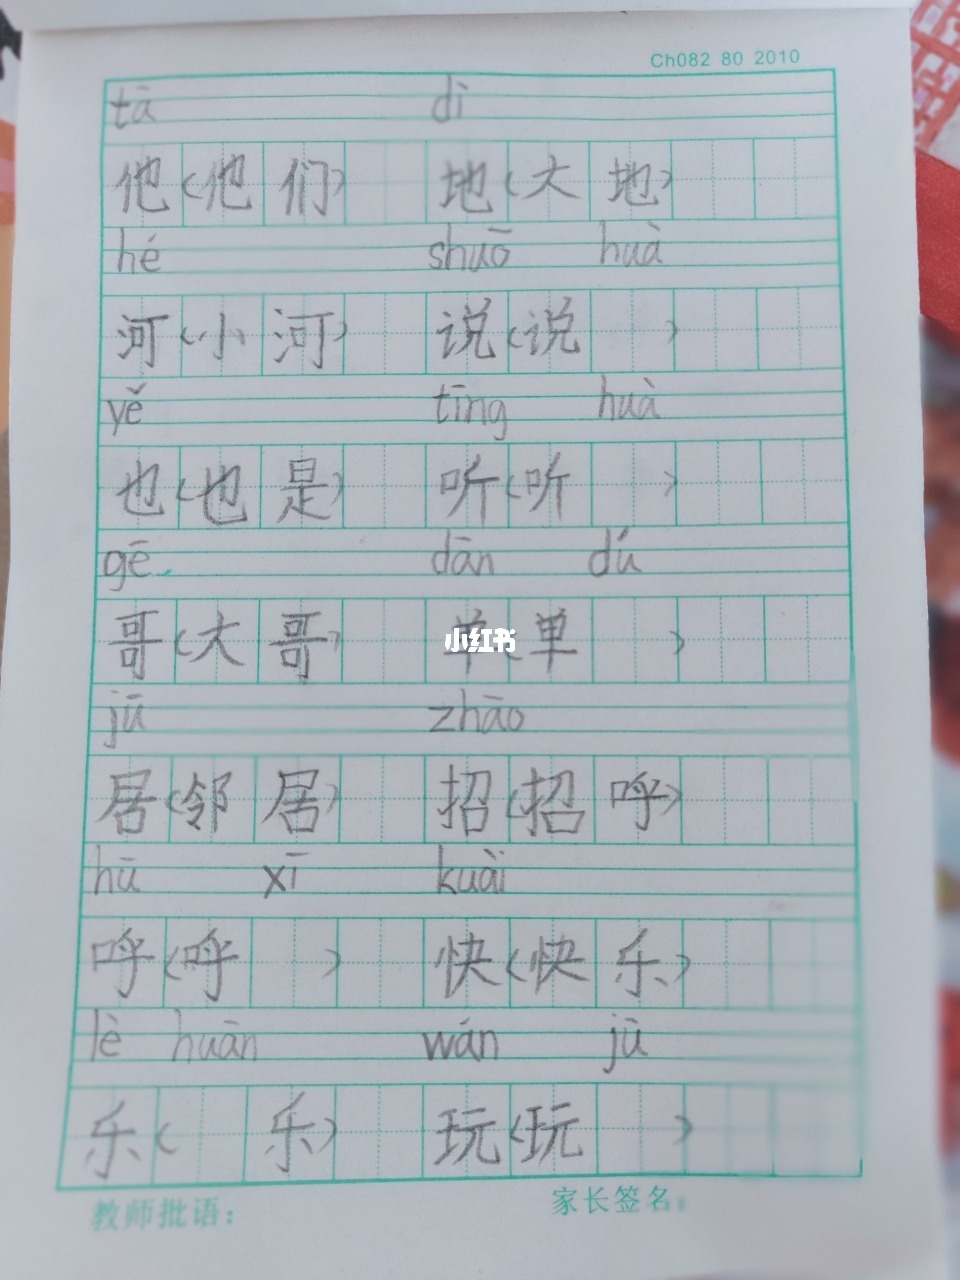 Ch082 80 2010
tā dì
他(他们) 地(大地)
hé shuō huà
河(小河) 说(说 )
yě tīng huà
也(也是) 听(听 )
gē dān dú
哥(大哥) 单(单 )
小红书
jū zhāo
居(邻居) 招(招呼)
hū xī kuài
呼(呼 ) 快(快乐)
lè huān wán jū
乐( 乐) 玩(玩 )
教师批语： 家长签名：